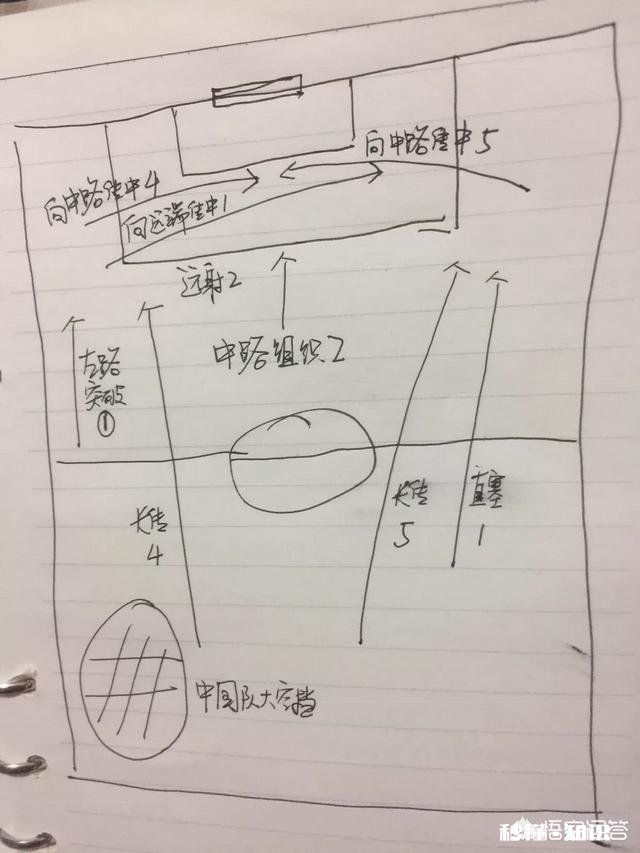 向中路传中5
向中路传中4
向远端传中1
远射2
中路组织2
左路
突破
①
长传
4
长传
5
直塞
1
中国队大空挡
秒懂知识
悟空问答